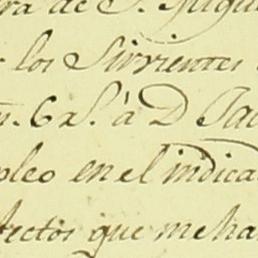 ra de S. Migu
los Sirvientes
n. 6 rs. à D. Jac
pleo en el indica
fectos que me ha